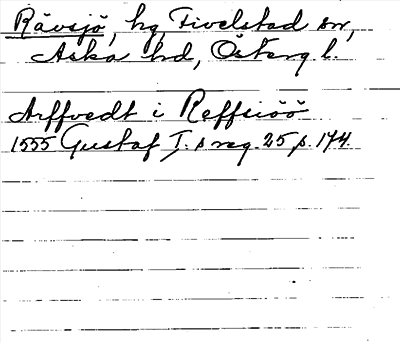 Rävsjö, hg, Fivelstad sn,
Aska hd, Österg l.
Arffvedt i Reffsiöö
1555 Gustaf I.s reg. 25 p. 174.